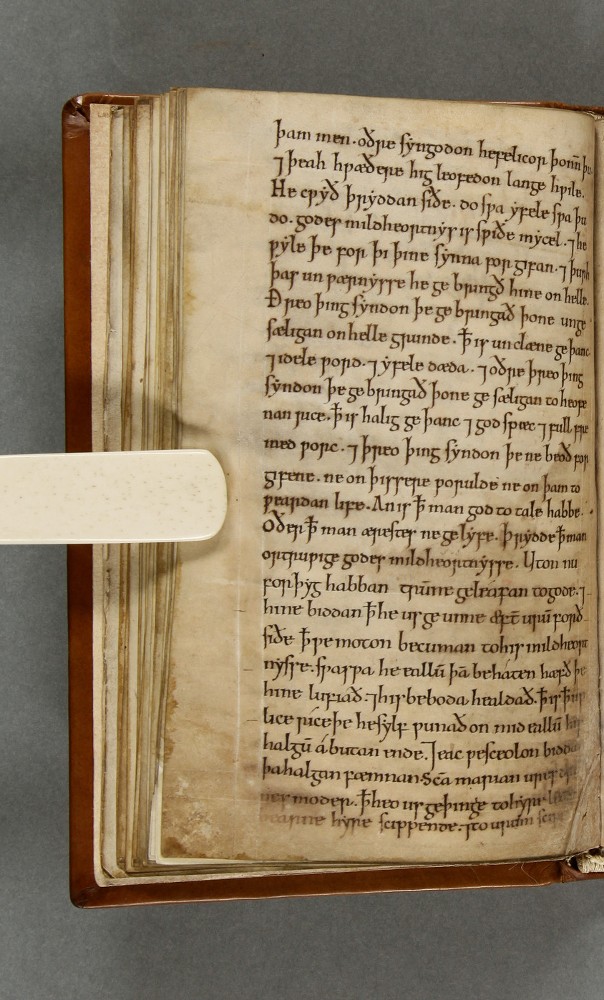 þam men. oðre syngodon hefelicor þonn̄ þu
⁊ þeah hwæðere hig leofedon lange hwile.
He cwyð þryddan siðe. do swa yfele swa þu
do. godes mildheortnys is swiðe mycel. ⁊ he
wyle þe for þi þine synna for gifan. ⁊ þurh
þas un wærnysse he ge bringð hine on helle.
Ðreo þing syndon þe ge bringað þone unge
sæligan on helle grunde. ꝥ is unclæne ge þanc
⁊ idele word. ⁊ yfele dæda. ⁊ oðre þreo þing
syndon þe ge bringað þone ge sæligan to heofe
nan rice. ꝥ is halig ge þanc ⁊ god spæc ⁊ full fre
med worc. ⁊ þreo þing syndon þe ne beoð for
gifene. ne on þissere worulde ne on þam to
weardan life. An is ꝥ man god to tale habbe.
Oðer ꝥ man æristes ne ge lyfe. þrydde ꝥ man
ortruwige godes mildheortnysse. Uton nu
forþyg habban trūne geleafan to gode. ⁊
hine biddan ꝥ he us ge unne æft̄ urū forð
siðe ꝥ we moton becuman to his mildheort
nysse. swa swa he eallū þā behaten hæfð þe
hine lufiað. ⁊ his beboda healdað. ꝥ is ꝥ
lice rice þe he sylf wunað on mid eallū his
halgū á butan ende. ⁊ eac we sceolon biddan
þa halgan fæmnan Scā marian ures
moder. ꝥ heo us ge þinge to hyre
hyre scippende. ⁊ to urum